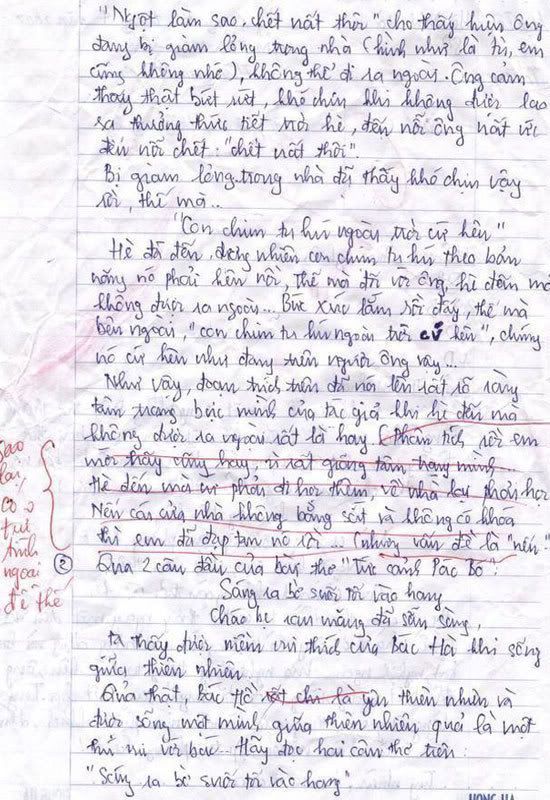 "Ngột làm sao, chết uất thôi" cho thấy hiện ông
đang bị giam lỏng trong nhà (hình như là tù, em
cũng không nhớ), không thể đi ra ngoài. Ông cảm
thấy thật bứt rứt, khó chịu khi không được lao
ra thưởng thức tiết trời hè, đến nỗi ông uất ức
đến nỗi chết. "chết uất thôi".
Bị giam lỏng trong nhà đã thấy khó chịu vậy
rồi, thế mà..
"Con chim tu hú ngoài trời cứ kêu"
Hè đã đến, đương nhiên con chim tu hú theo bản
năng nó phải kêu rồi, thế mà đối với ông, hè đến mà
không được ra ngoài... Bức xúc lắm rồi đấy, thế mà
bên ngoài, "con chim tu hú ngoài trời cứ kêu", chúng
nó cứ kêu như đang trêu ngươi ông vậy...
Như vậy, đoạn trích trên đã nói lên rất rõ ràng
tâm trạng bực mình của tác giả khi hè đến mà
không được ra ngoài rất là hay (Phân tích rồi em
mới thấy cũng hay, vì rất giống tâm trạng mình
Hè đến mà cứ phải đi học thêm, về nhà lại phải học
Nếu cái cửa nhà không bằng sắt và không có khóa
thì em đã đạp tan nó rồi... (nhưng vấn đề là "nếu"
Sao
lại
có
tình
ngoài
đề thế
② Qua 2 câu đầu của bài thơ "Tức cảnh Pác Bó":
Sáng ra bờ suối tối vào hang
Cháo bẹ rau măng đã sẵn sàng,
ta thấy được niềm vui thích của Bác Hồ khi sống
giữa thiên nhiên.
Quả thật, Bác Hồ rất chi là yêu thiên nhiên và
được sống một mình giữa thiên nhiên quả là một
thú vị với bác... Hãy đọc hai câu thơ trên:
"Sáng ra bờ suối tối vào hang"
HONG HA